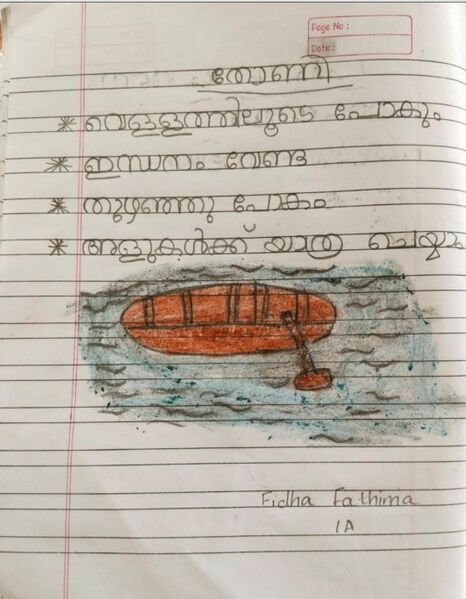 Page No :
Date :
തോണി
* വെള്ളത്തിലൂടെ പോകും
* ഇന്ധനം വേണ്ട
* തുഴഞ്ഞു പോകാം
* ആളുകൾക്ക് യാത്ര ചെയ്യാം
Fidha Fathima
1A